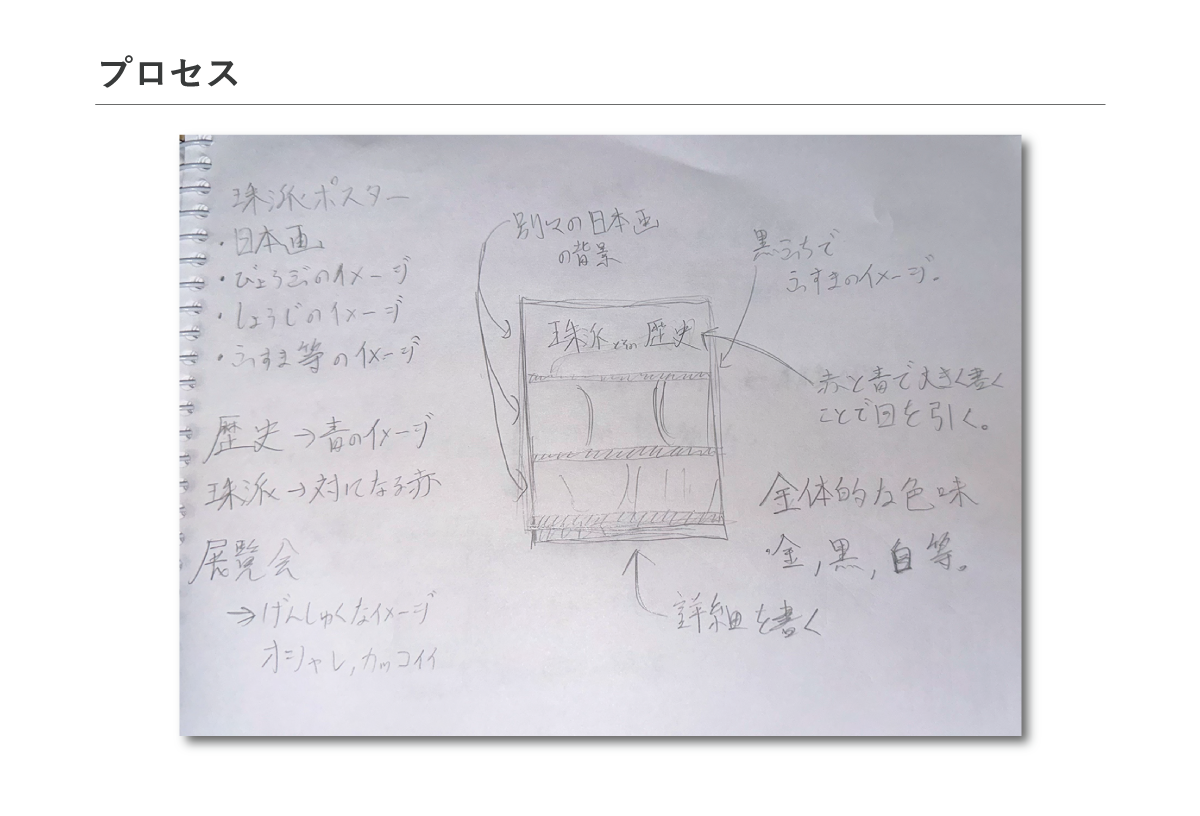 プロセス
珠派ポスター
・日本画
・びょうぶのイメージ
・しょうじのイメージ
・ふすま等のイメージ
歴史→青のイメージ
珠派→対になる赤
展覧会
→げんしゅくなイメージ
オシャレ,カッコイイ
別々の日本画
の背景
珠派 歴史
黒ふちで
ふすまのイメージ。
赤と青で大きく書く
ことで目を引く。
全体的な色味
・金,黒,白等。
詳細を書く